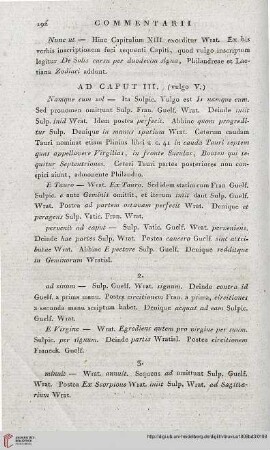 296 COMMENTARII
Nunc ut — Hinc Capitulum XIII. exorditur Wrat. Ex his
verbis inscriptionem feci sequenti Capiti, quod vulgo inscriptum
legitur De Solis cursu per duodecim signa, Philandreae et Lae-
tiana Zodiaci addunt.
AD CAPUT III. (vulgo V.)
Namque cum sol — Ita Sulpic. Vulgo est Is namque cum.
Sed pronomen omittunt Sulp. Fran. Guelf. Wrat. Deinde init
Sulp. inid Wrat. Idem postea perfecit. Abhinc quum progredi-
tur Sulp. Denique in motus spatium Wrat. Ceterum caudam
Tauri nominat etiam Plinius libri 2. 41 in cauda Tauri septem
quas appellavere Vergilias, in fronte Suculas, Booten qui se-
quitur Septentriones. Ceteri Tauri partes posteriores non con-
spici aiunt, admonente Philandro.
E Tauro — Wrat. Ex Tauro. Sed idem statim cum Fran. Guelf.
Sulpic. e ante Geminis omittit, et iterum init dant Sulp. Guelf.
Wrat. Postea ad partem octavam perfecit Wrat. Denique et
peragens Sulp. Vatic. Fran. Wrat.
pervenit ad caput — Sulp. Vatic. Guelf. Wrat. perveniens.
Deinde hae partes Sulp. Wrat. Postea cancero Guelf. sint attri-
butae Wrat. Abhinc E pectore Sulp. Guelf. Denique redditque
in Geminorum Wratisl.
2.
ad sinum — Sulp. Guelf. Wrat. signum. Deinde contra id
Guelf. a prima manu. Postea circuitionem Fran. a prima, circitiones
a secunda manu scriptum habet. Denique aequat ad eam Sulpic.
Guelf. Wrat.
E Virgine — Wrat. Egrediens autem pro virgine per sinum.
Sulpic. per signum. Deinde partis Wratisl. Postea circitionem
Francek. Guelf.
3.
minuit — Wrat. annuit. Sequens ad omittunt Sulp. Guelf.
Wrat. Postea Ex Scorpione Wrat. iniit Sulp. Wrat. ad Sagitta-
rium Wrat.